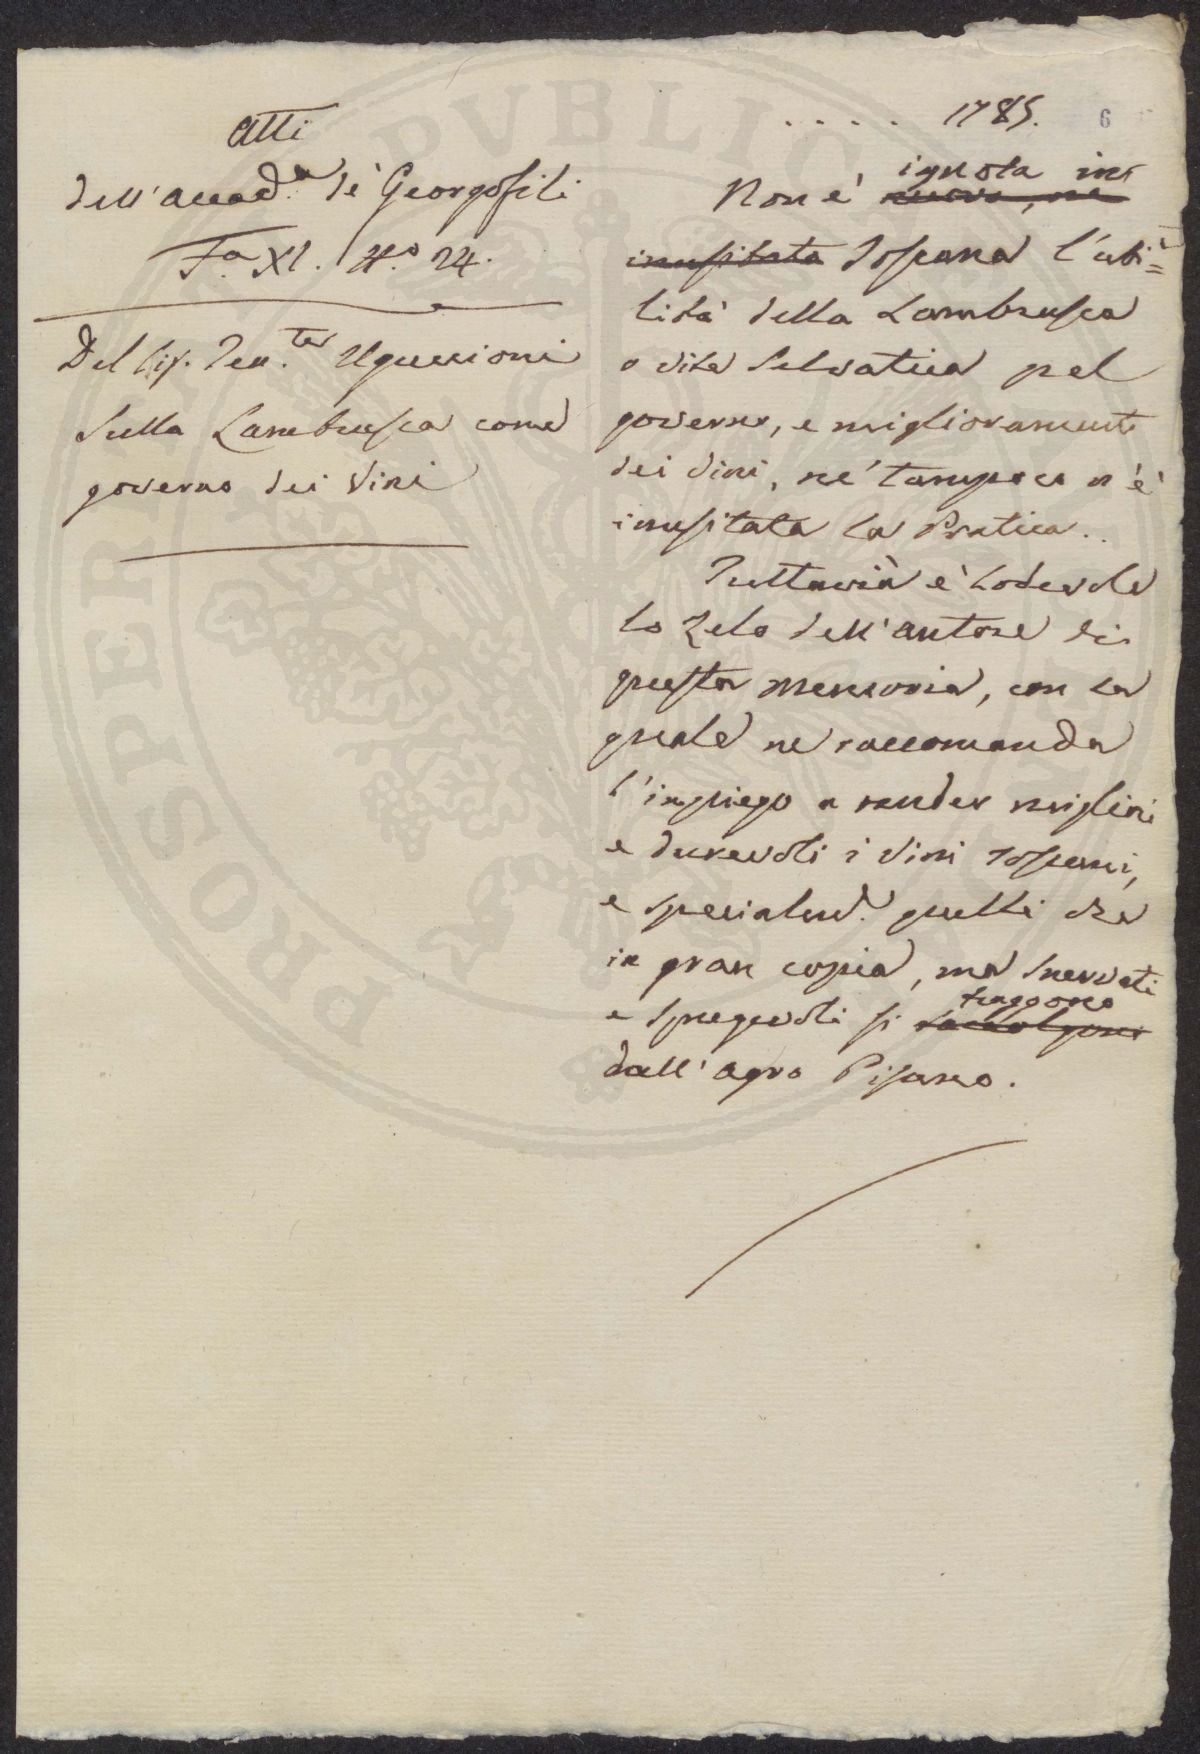 Atti
dell'Accad.a de' Georgofili
F.a XI. N.o 24.
Del Sig. Ten.te Uguccioni
Sulla Lambrusca come
governo dei Vini
. . . . 1785. 6
ignota in
Non è nuova, ne
inusitata Toscana l'uti=
lità della Lambrusca
o vite Selvatica pel
governo, e miglioramento
dei Vini, nè tampoco n'è
inusitata la Pratica..
Tuttavià è lodevole
lo Zelo dell'autore di
questa memoria, con la
quale ne raccomanda
l'impiego a render migliori
e durevoli i Vini Toscani,
e specialmd. quelli che
in gran copia, ma Snervati
traggono
e Spregevoli si raccolgono
dall'agro Pisano.
PROSPERITATI PVBLICAE